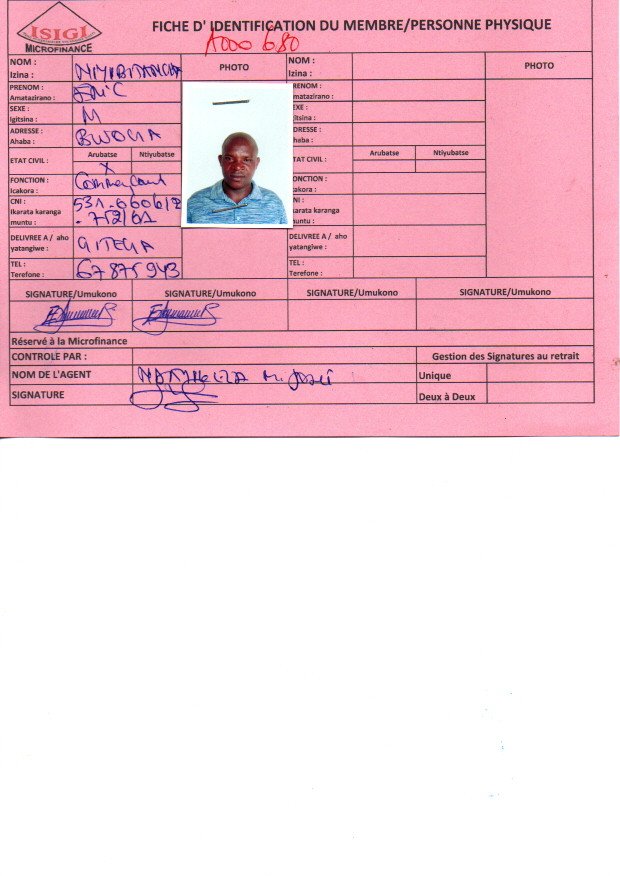 ISIGI
MICROFINANCE
FICHE D' IDENTIFICATION DU MEMBRE/PERSONNE PHYSIQUE
A000 680
NOM :
Izina :
PHOTO
NOM :
Izina :
PHOTO
PRENOM :
Amatazirano :
ERIC
RENOM :
matazirano :
SEXE :
Igitsina :
M
EXE :
itsina :
ADRESSE :
Ahaba :
BWOGA
DRESSE :
haba :
ETAT CIVIL :
Arubatse
Ntiyubatse
X
TAT CIVIL :
Arubatse
Ntiyubatse
FONCTION :
Icakora :
Commerçant
ONCTION :
cakora :
CNI :
Ikarata karanga
muntu :
NI :
karata karanga
untu :
DELIVREE A / aho
yatangiwe :
GITEGA
DELIVREE A / aho
yatangiwe :
TEL :
Terefone :
67875943
TEL :
Terefone :
SIGNATURE/Umukono
SIGNATURE/Umukono
SIGNATURE/Umukono
SIGNATURE/Umukono
Réservé à la Microfinance
CONTROLE PAR :
Gestion des Signatures au retrait
NOM DE L'AGENT
Unique
SIGNATURE
Deux à Deux